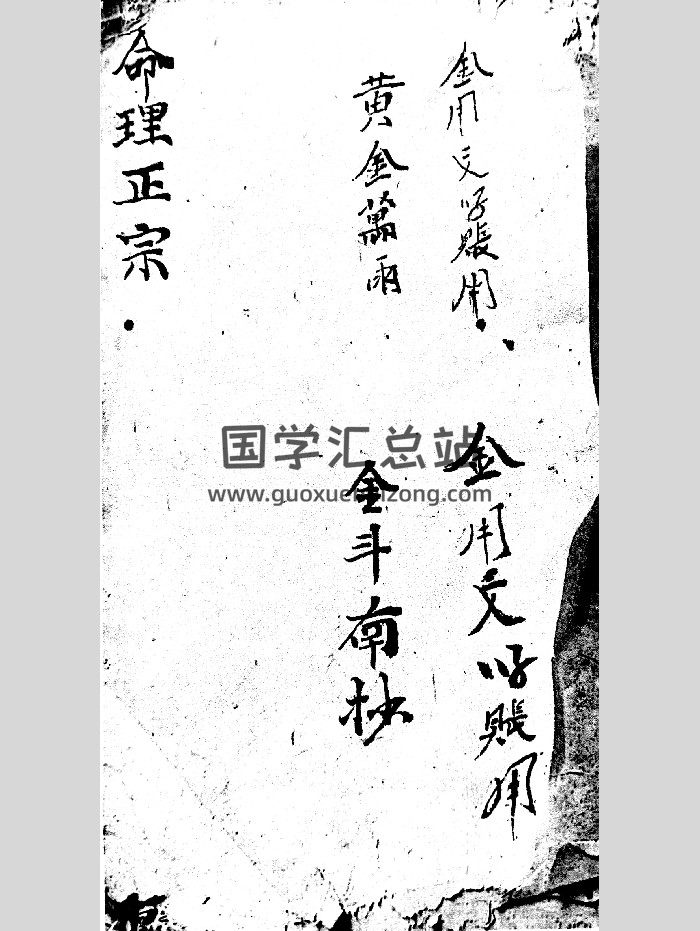 金用文好賬用
金用文好賬用
黄金萬両
金斗南抄
命理正宗
国学汇总站
www.guoxuehuizong.com